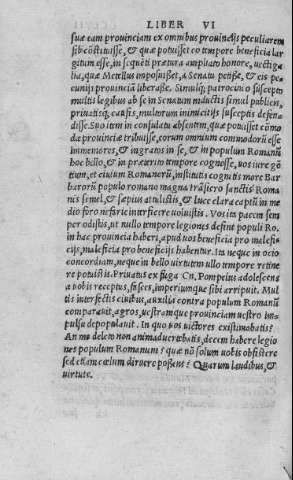 LIBER VI
suæ eam prouinciam ex omnibus prouincijs peculiarem
sibi cōstituisse, & quæ potuisset eo tempore beneficia lar
gitum esse, in sequēti prætura ampliato honore, uectiga
lia, quæ Metellus imposuisset, à Senatu petiße, & eis pe
cunijs prouinciā liberaße. Simulq; patrocinio suscepto
multis legibus ab se in Senatum inductis simul publicis,
priuatisq; causis, multorum inimicitijs susceptis defen
disse. Suo item in consulatu absentem, quæ potuisset cōmo
da prouinciæ tribuisse, eorum omnium commodorū esse
immemores, & ingratos in se, & in populum Romanū
hoc bello, & in præterito tempore cognosse. uos iure gē
tium, et ciuium Romanorū, institutis cognitis more Bar
barorū populo romano magna trāsiero sanctis Roma
nis semel, & sæpius attulistis, & luce clara captī in me
dio foro nefarie interficere uoluistis. Vos ita pacem sem
per odistis, ut nullo tempore legiones desint populi Ro.
in hac prouincia haberi, apud uos beneficia pro malefi
cijs, maleficia pro beneficijs habentur. Ita neque in ocio
concordiam, neque in bello uirtutem ullo tempore retine
re potuistis. Priuatus ex fuga Cn. Pompeius adolescens
a uobis receptus, fasces, imperiumque sibi arripuit. Mul
tis interfectis ciuibus, auxilia contra populum Romanū
comparauit, agros, uestramque prouinciam uestro im-
pulsu depopulauit. In quo uos uictores existimabatis?
An me deleto non animaduertebatis, decem habere legio
nes populum Romanum? quæ nō solum uobis obsistere
sed etiam cœlum diruere possent? Quarum laudibus, &
uirtute.